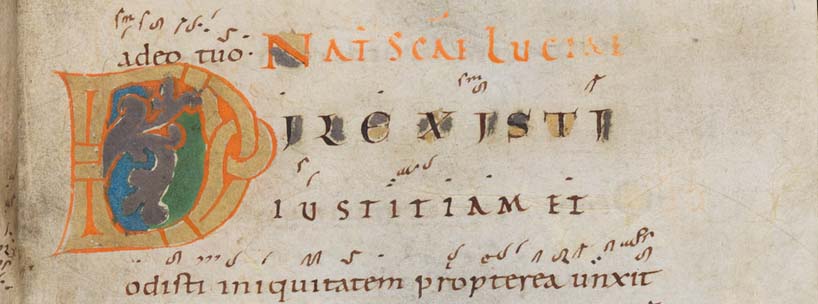 adeo tuo. NAT SCAE LUCIAE
DILEXISTI
IUSTITIAM ET
odisti iniquitatem propterea unxit